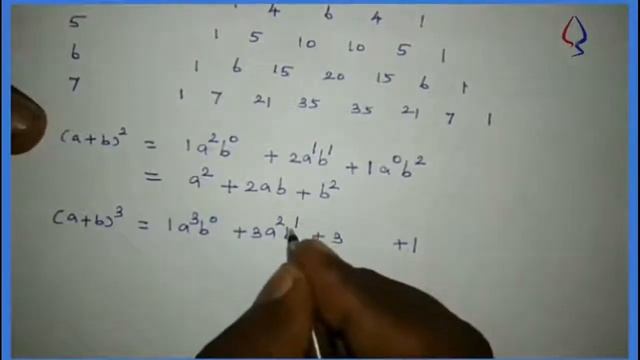 5 1 4 6 4 1
6 1 5 10 10 5 1
7 1 6 15 20 15 6 1
1 7 21 35 35 21 7 1
(a+b)² = 1a²b⁰ + 2a¹b¹ + 1a⁰b²
= a² + 2ab + b²
(a+b)³ = 1a³b⁰ + 3a²b¹ + 3 + 1